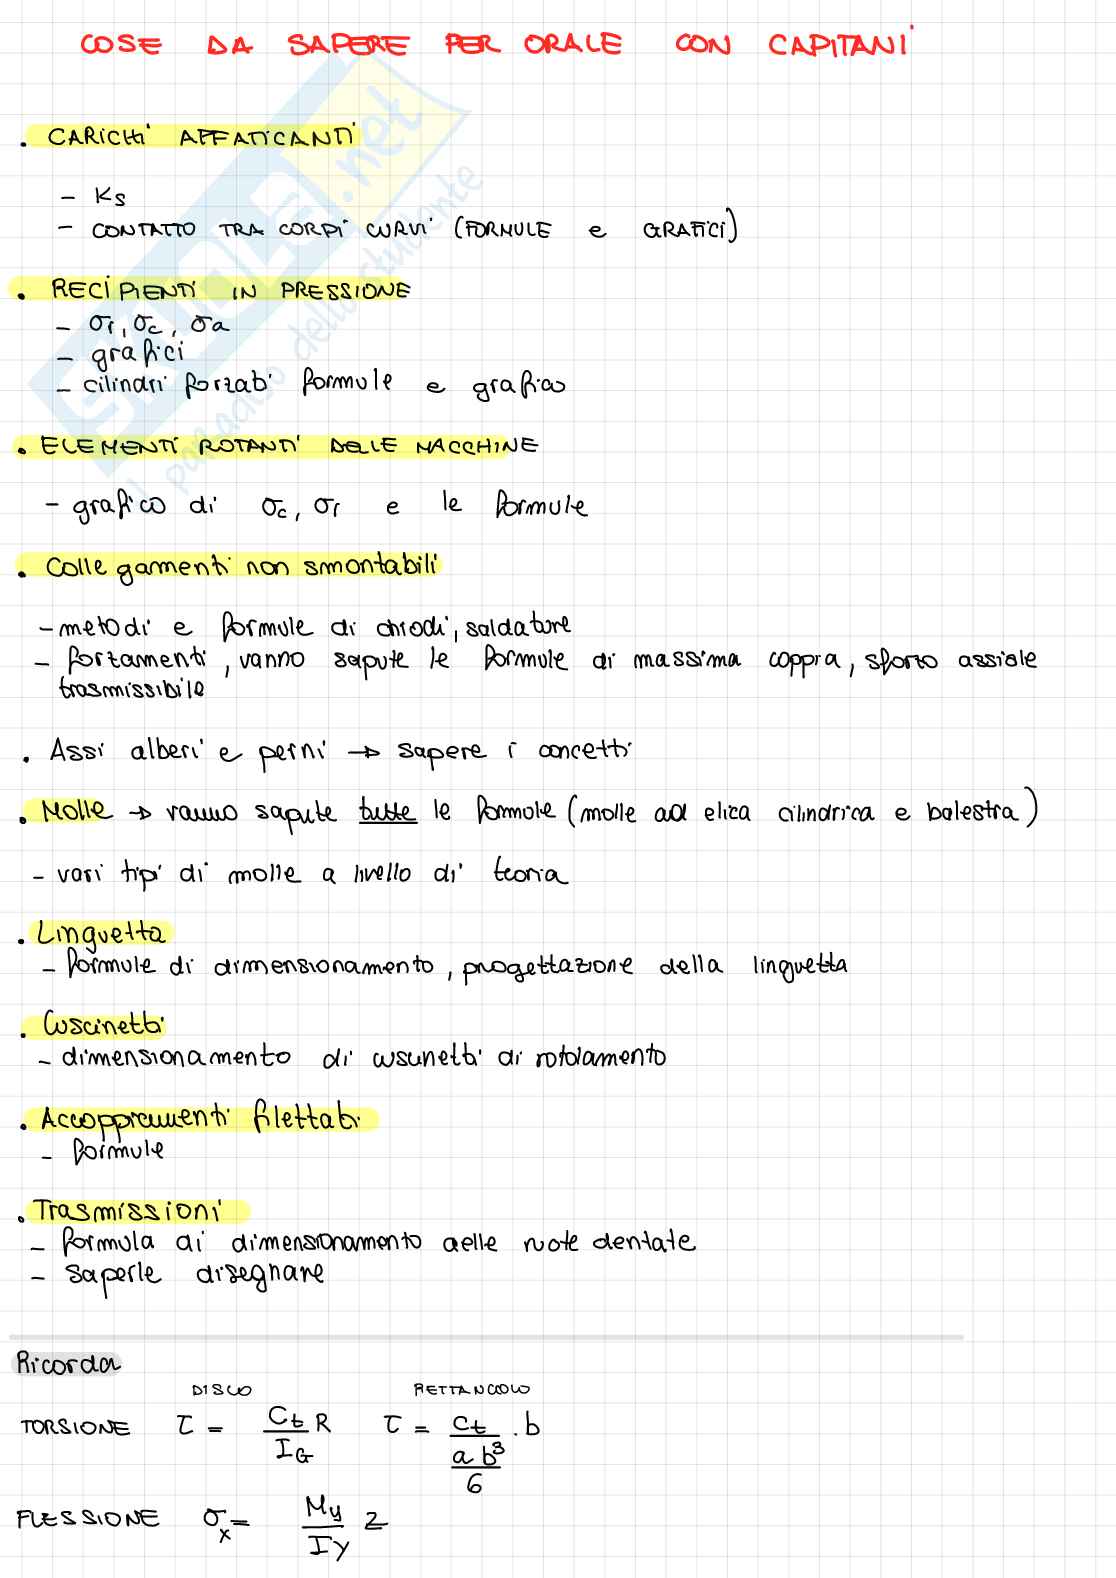 COSE DA SAPERE PER ORALE CON CAPITANI
SKUOLA.net
il paradiso dello studente
. CARICHI AFFATICANTI
- Ks
- CONTATTO TRA CORPI CURVI (FORMULE e GRAFICI)
. RECIPIENTI IN PRESSIONE
- σr, σc, σa
- grafici
- cilindri forzati formule e grafico
. ELEMENTI ROTANTI DELLE MACCHINE
- grafico di σc, σr e le formule
. Collegamenti non smontabili
- metodi e formule di chiodi, saldature
- forzamenti, vanno sapute le formule di massima coppia, sforzo assiale
trasmissibile
. Assi alberi e perni → sapere i concetti
. Molle → vanno sapute tutte le formule (molle ad elica cilindrica e balestra)
- vari tipi di molle a livello di teoria
. Linguetta
- formule di dimensionamento, progettazione della linguetta
. Cuscinetti
- dimensionamento di cuscinetti di rotolamento
. Accoppiamenti filettati
- formule
. Trasmissioni
- formula di dimensionamento delle ruote dentate
- saperle disegnare
Ricorda
DISCO RETTANGOLO
TORSIONE τ = Ct/IG R τ = Ct/(ab³/6) . b
FLESSIONE σx = My/Iy z